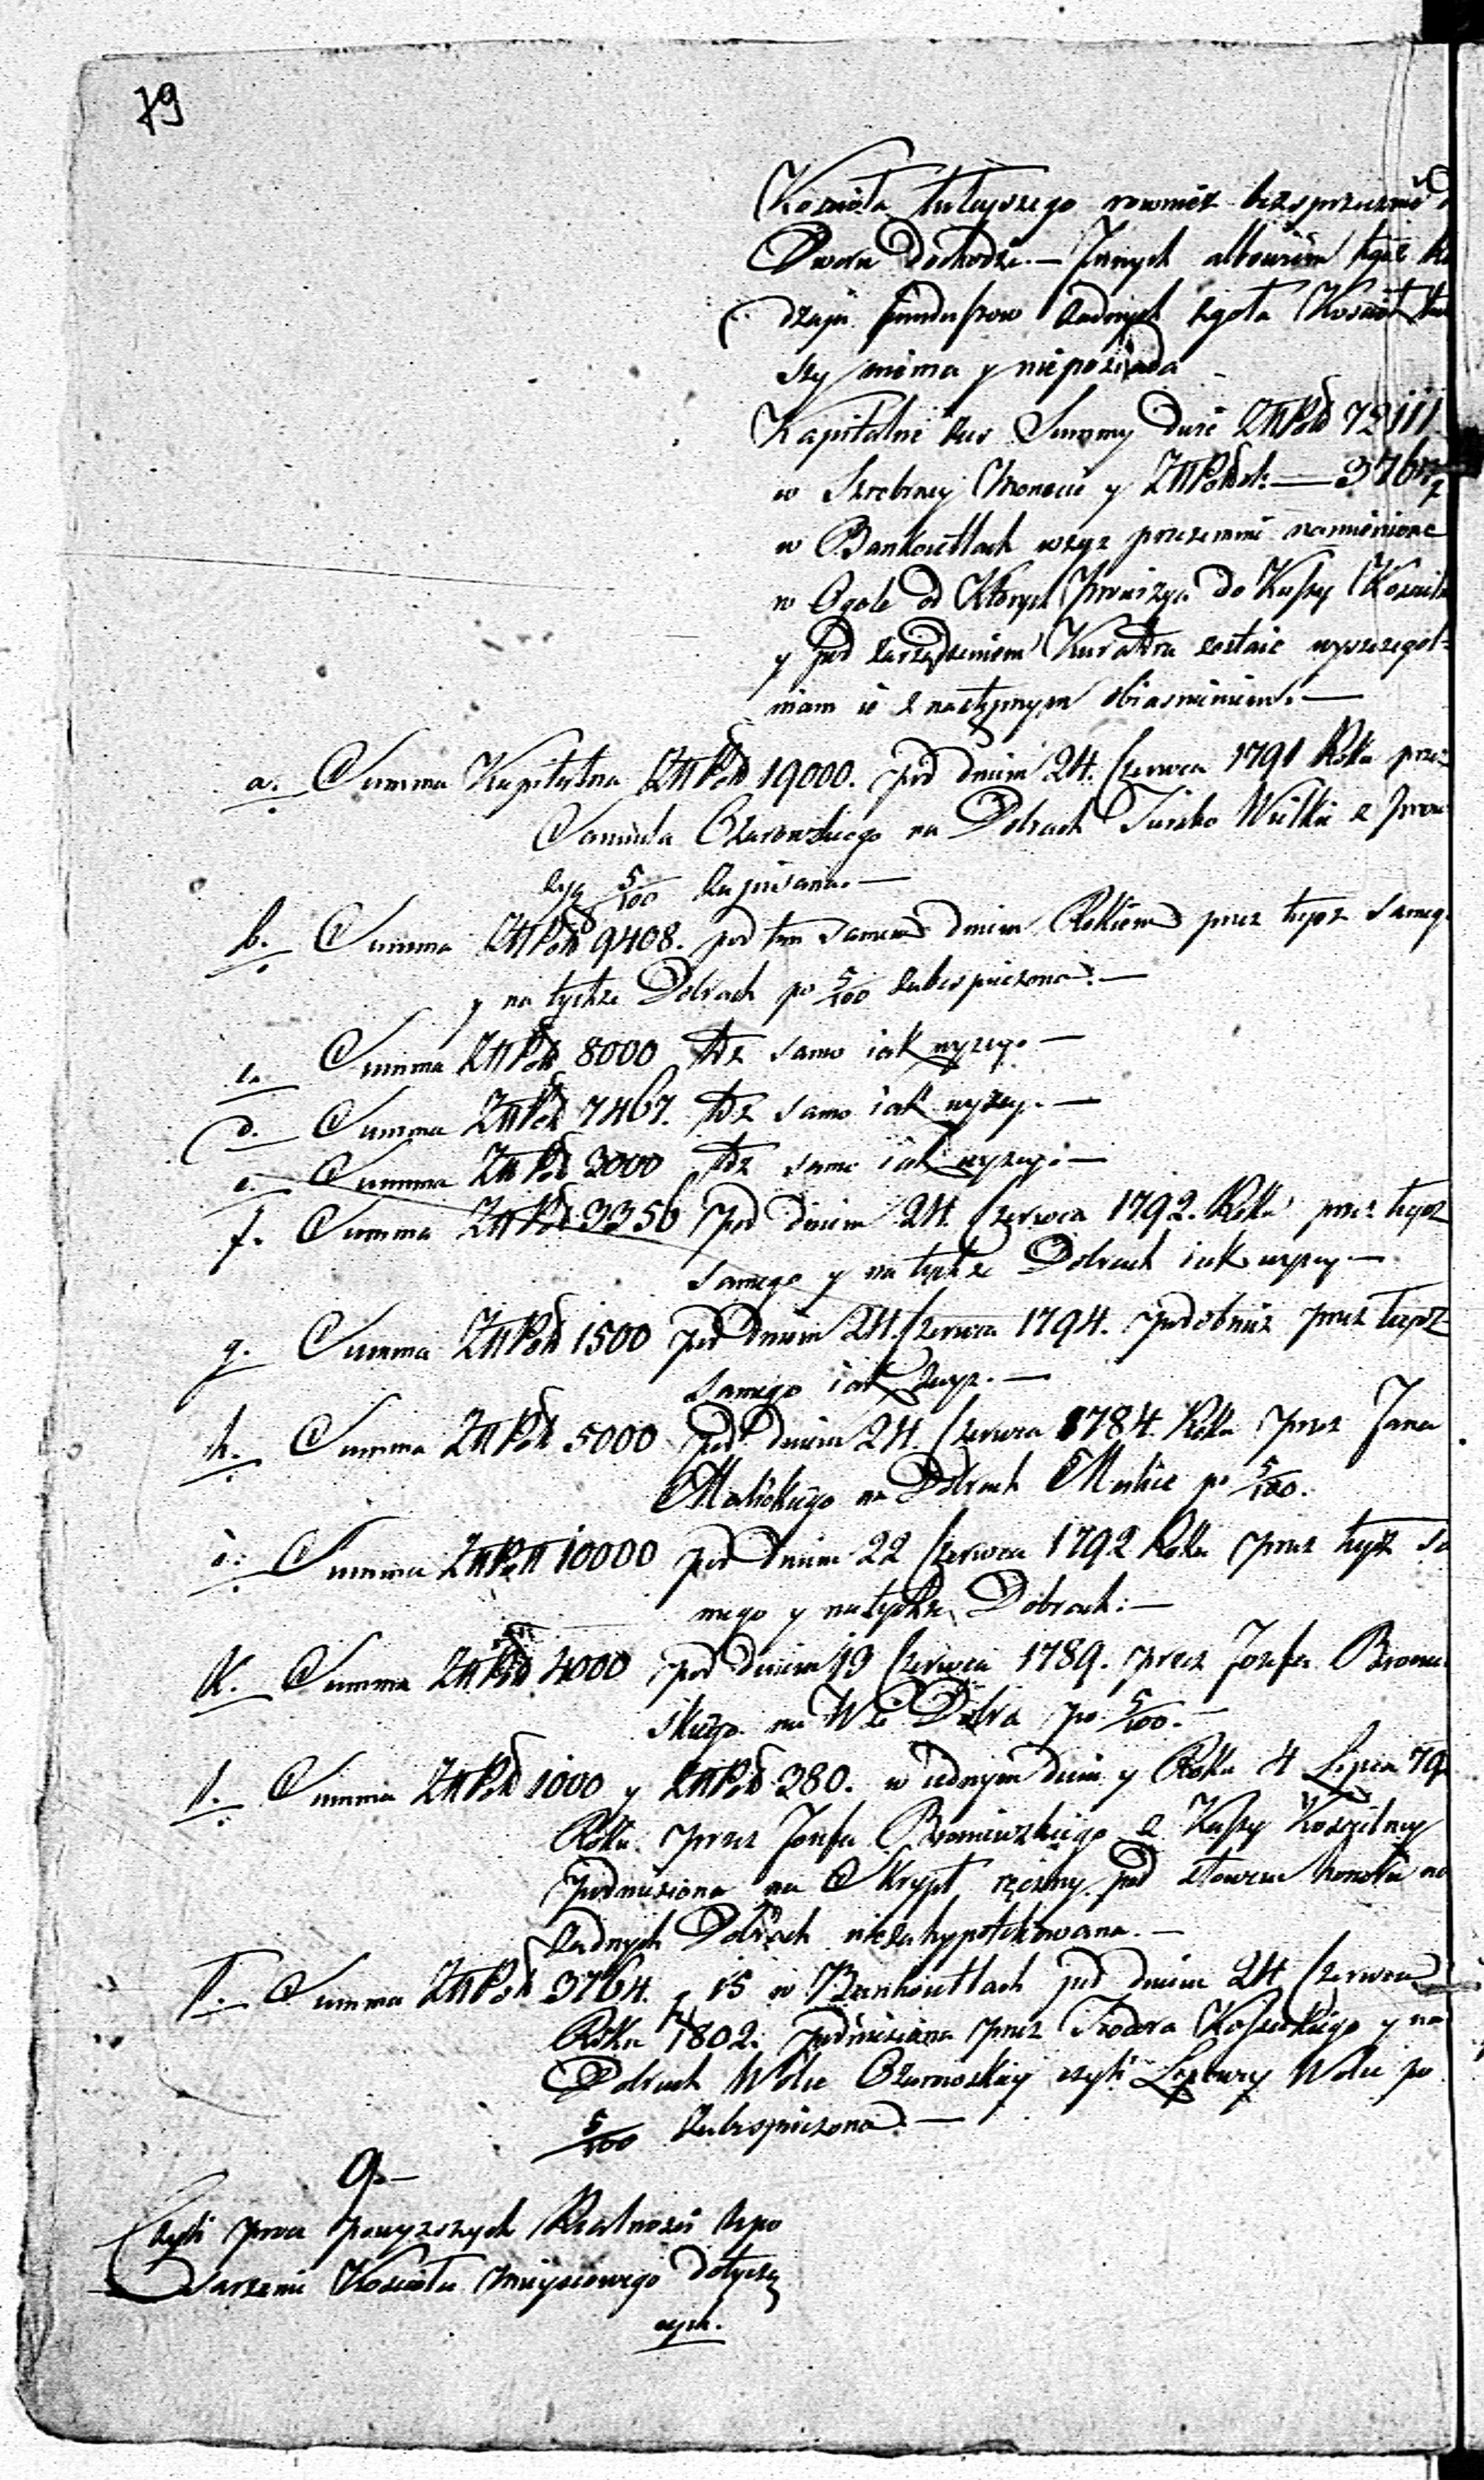 79
Kościoła tuteyszego rownież bezsprzecznie
Dworu dochodzi. — Innych albowiem tegoż
dzaju funduszow żadnych zgoła Kościoł
szy niema y nieposiada
Kapitalne zaś Summy dwie ZłłPols 72111
w Srebrney Monecie y ZłłPolsk. — 376
w Bankocetlach wzyz przezemnie namienione
w Ogole od Ktorych Prowizya do Kassy
y pod zarządzeniem Kuratora zostaie wyszczegol-
niam ie z następnym obiasnieniem. —
a. Summa Kapitalna ZłłPols 19000. pod dniem 24. Czerwca 1791 Roku przez
Samuela Ożarowskiego na Dobrach Tursko Wielkie z prow
zyą 5/100 zapisana. —
b. Summa ZłłPols 9408. pod tym samem dniem Rokiem przez tegoż sameg
y na tychże Dobrach po 5/100 zabespieczona. —
c. Summa ZłłPols 8000 też samo iak wyzey. —
d. Summa ZłłPols 7467. też samo iak wyzey. —
e. Summa ZłłPols 3000 też samo iak wyzey. —
f. Summa ZłłPols 3356 pod dniem 24 Czerwca 1792. Roku przez tegoż
samego y na tychże Dobrach iak wyzey —
g. Summa ZłłPols 1500 pod dniem 24. Czerwca 1794. podobnież przez tegoż
samego iak wyz. —
h. Summa ZłłPols 5000 pod dniem 24. Czerwca 1784. Roku przez Jana
Malickiego na Dobrach Malice po 5/100.
i. Summa ZłłPoll 10000 pod dniem 22 Czerwca 1792 Roku przez tegoż sa
mego y na tychże Dobrach. —
k. Summa ZłłPols 4000 pod dniem 19 Czerwca 1789. przez Jozefa
skiego na Wsi Dobra po 5/100. —
l. Summa ZłłPols 1000 y ZłłPols 380. w iednym dniu y Roku 4 Lipca 79
Roku przez Jozefa Broniewskiego z Kassy Kościelney
podniesiona na Skrypt ręczny pod słowem honoru na
żadnych Dobrach niezahypotekowana. —
ł. Summa ZłłPols 3764. 15 w Bankocetlach pod dniem 24 Czerwca
Roku 1802. podniesiona przez Teodora y na
Dobrach Wolce Ożarowskiey czyli Wolce po
5/100 zabespieczona. —
9. —
Czyli procz powyzszych Realnosci
Kościoła mieyscowego dotyczą
cych.